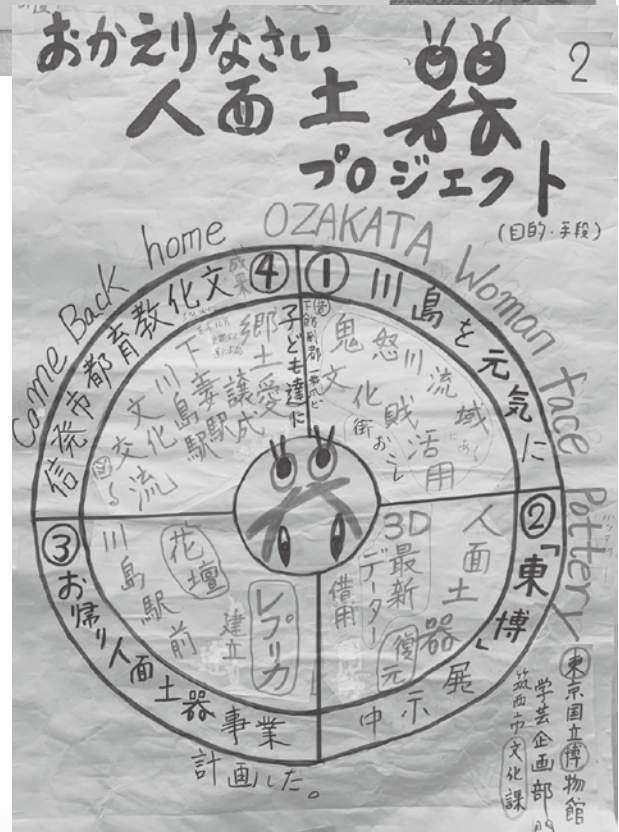 おかえりなさい
人面土器
プロジェクト
2
(目的・手段)
Came Back home OZAKATA Woman face Pottery
① 川島を元気に
鬼怒川流域
文化財活用
街おこし
②「東博」
人面土器展示中
3D最新データー借用
復元
③ お帰り人面土器事業
計画した。
川島駅前
花壇
建立
レプリカ
④ 成果
文化教育都市発信
子ども達に
郷土愛
譲成
下妻駅
川島駅
文化交流
図る
東京国立博物館
学芸企画部
筑西市文化課